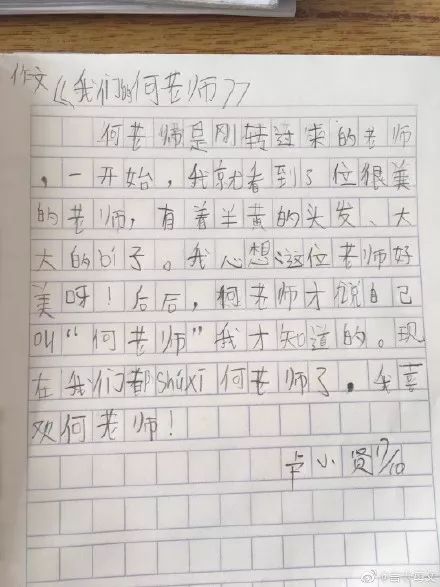 作文《我们的何老师》
何老师是刚转过来的老师
，一开始，我就看到了位很美
的老师，有着兰黄的头发、大
大的bí子。我心想这位老师好
美呀！后后，何老师才说自己
叫“何老师”我才知道的。现
在我们都shúxī何老师了，我喜
欢何老师！
卢小贤 7/10